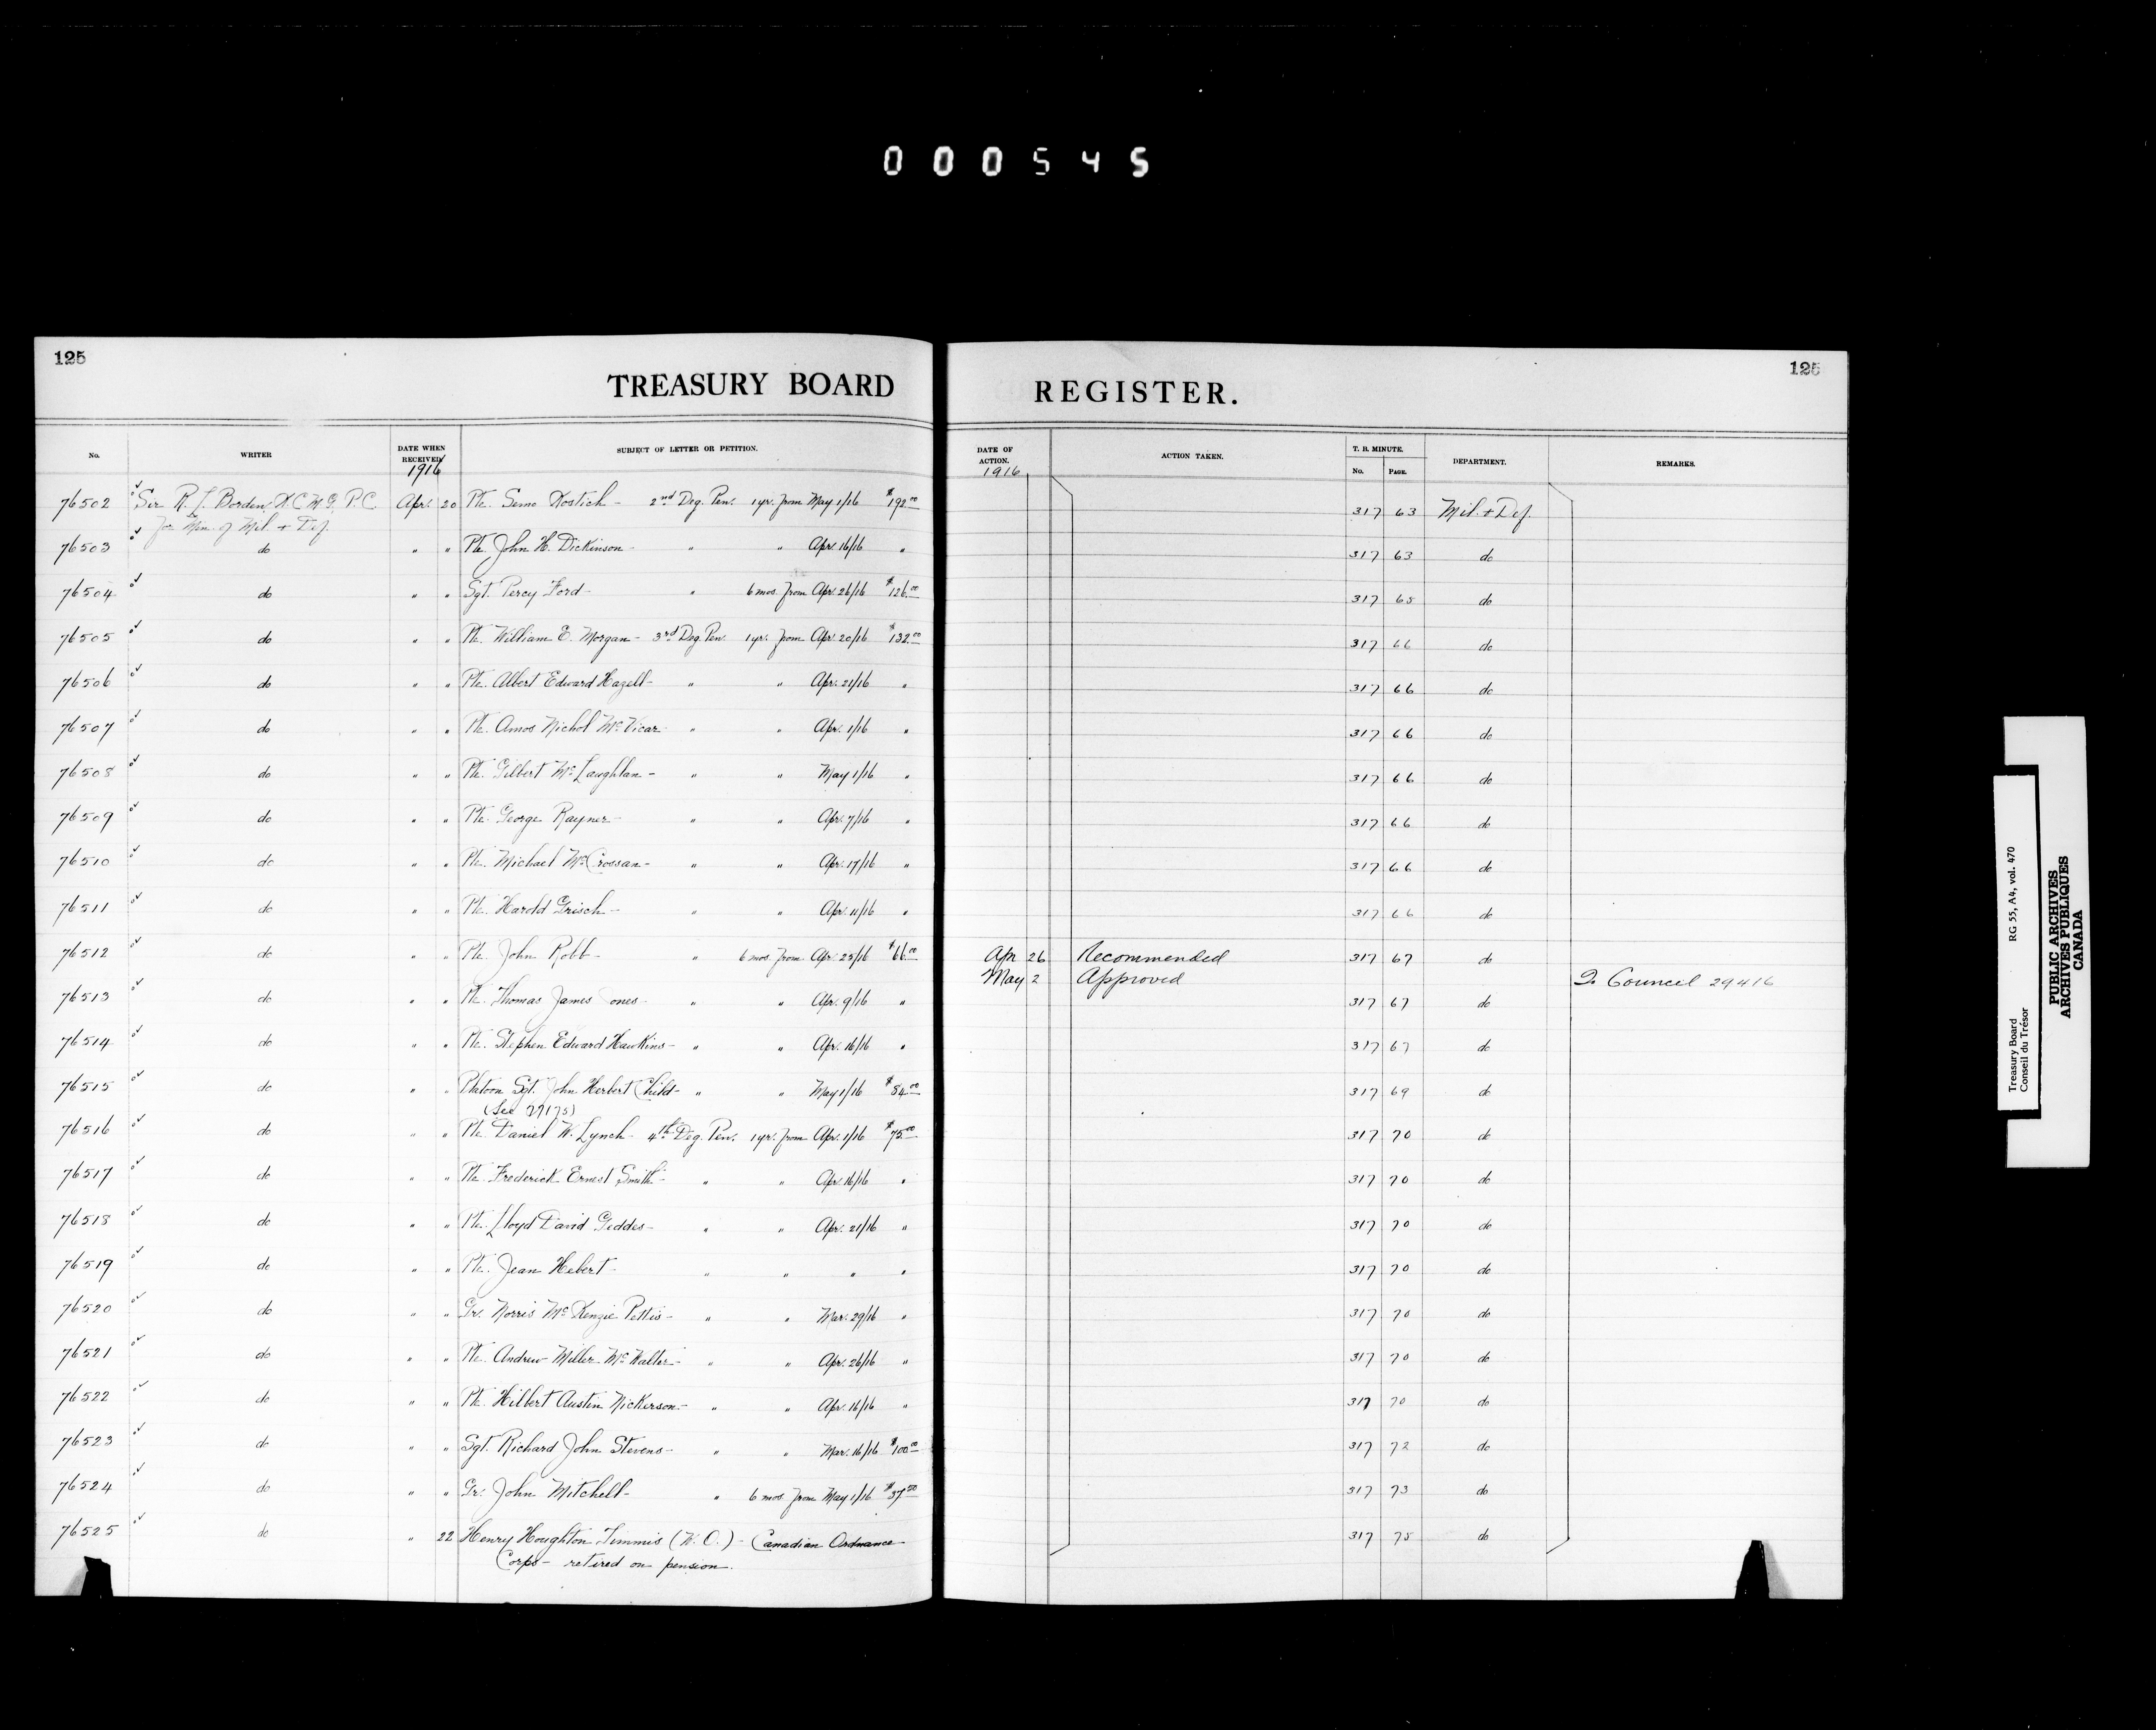 000545
125
TREASURY BOARD
No. WRITER DATE WHEN RECEIVED SUBJECT OF LETTER OR PETITION.
1916
76502 Sir R. L. Borden, K.C.M.G., P.C. Apr. 20 Pte. Simo Kostich - 2nd Deg. Pen. 1 yr. from May 1/16 $192.00
for Min. of Mil. + Def.
76503 do " " Pte. John H. Dickinson - " " Apr. 16/16 "
76504 do " " Sgt. Percy Ford - " 6 mos. from Apr. 26/16 $126.00
76505 do " " Pte. William E. Morgan - 3rd Deg. Pen. 1 yr. from Apr. 20/16 $132.00
76506 do " " Pte. Albert Edward Hazell - " " Apr. 21/16 "
76507 do " " Pte. Amos Nichol McVicar " " Apr. 1/16 "
76508 do " " Pte. Gilbert McLaughlan - " " May 1/16 "
76509 do " " Pte. George Rayner - " " Apr. 7/16 "
76510 do " " Pte. Michael McCrossan - " " Apr. 17/16 "
76511 do " " Pte. Harold Grisch - " " Apr. 11/16 "
76512 do " " Pte. John Robb - " 6 mos. from Apr. 25/16 $66.00
76513 do " " Pte. Thomas James ones - " " Apr. 9/16 "
76514 do " " Pte. Stephen Edward Hawkins - " " Apr. 16/16 "
76515 do " " Platoon Sgt. John Herbert Child - " " May 1/16 $84.00
(See 77175)
76516 do " " Pte. Daniel W. Lynch - 4th Deg. Pen. 1 yr. from Apr. 1/16 $75.00
76517 do " " Pte. Frederick Ernest Smith - " " Apr. 16/16 "
76518 do " " Pte. Lloyd David Geddes - " " Apr. 21/16 "
76519 do " " Pte. Jean Hebert - " " " "
76520 do " " Gr. Norris McKenzie Pettis - " " Mar. 29/16 "
76521 do " " Pte. Andrew Miller McWalter - " " Apr. 26/16 "
76522 do " " Pte. Hilbert Austin Nickerson - " " Apr. 16/16 "
76523 do " " Sgt. Richard John Stevens - " " Mar. 16/16 $100.00
76524 do " " Gr. John Mitchell - " 6 mos. from May 1/16 $37.50
76525 do " 22 Henry Houghton Timmis (W.O.) - Canadian Ordnance
Corps - retired on pension.
125
REGISTER.
DATE OF ACTION. ACTION TAKEN. T. B. MINUTE. No. PAGE. DEPARTMENT. REMARKS.
1916
317 63 Mil. + Def.
317 63 do
317 65 do
317 66 do
317 66 do
317 66 do
317 66 do
317 66 do
317 66 do
317 66 do
Apr 26 Recommended 317 67 do
May 2 Approved To Council 29416
317 67 do
317 67 do
317 69 do
317 70 do
317 70 do
317 70 do
317 70 do
317 70 do
317 70 do
317 70 do
317 72 do
317 73 do
317 75 do
Treasury Board RG 55, A4, vol. 470
Conseil du Trésor
PUBLIC ARCHIVES
ARCHIVES PUBLIQUES
CANADA